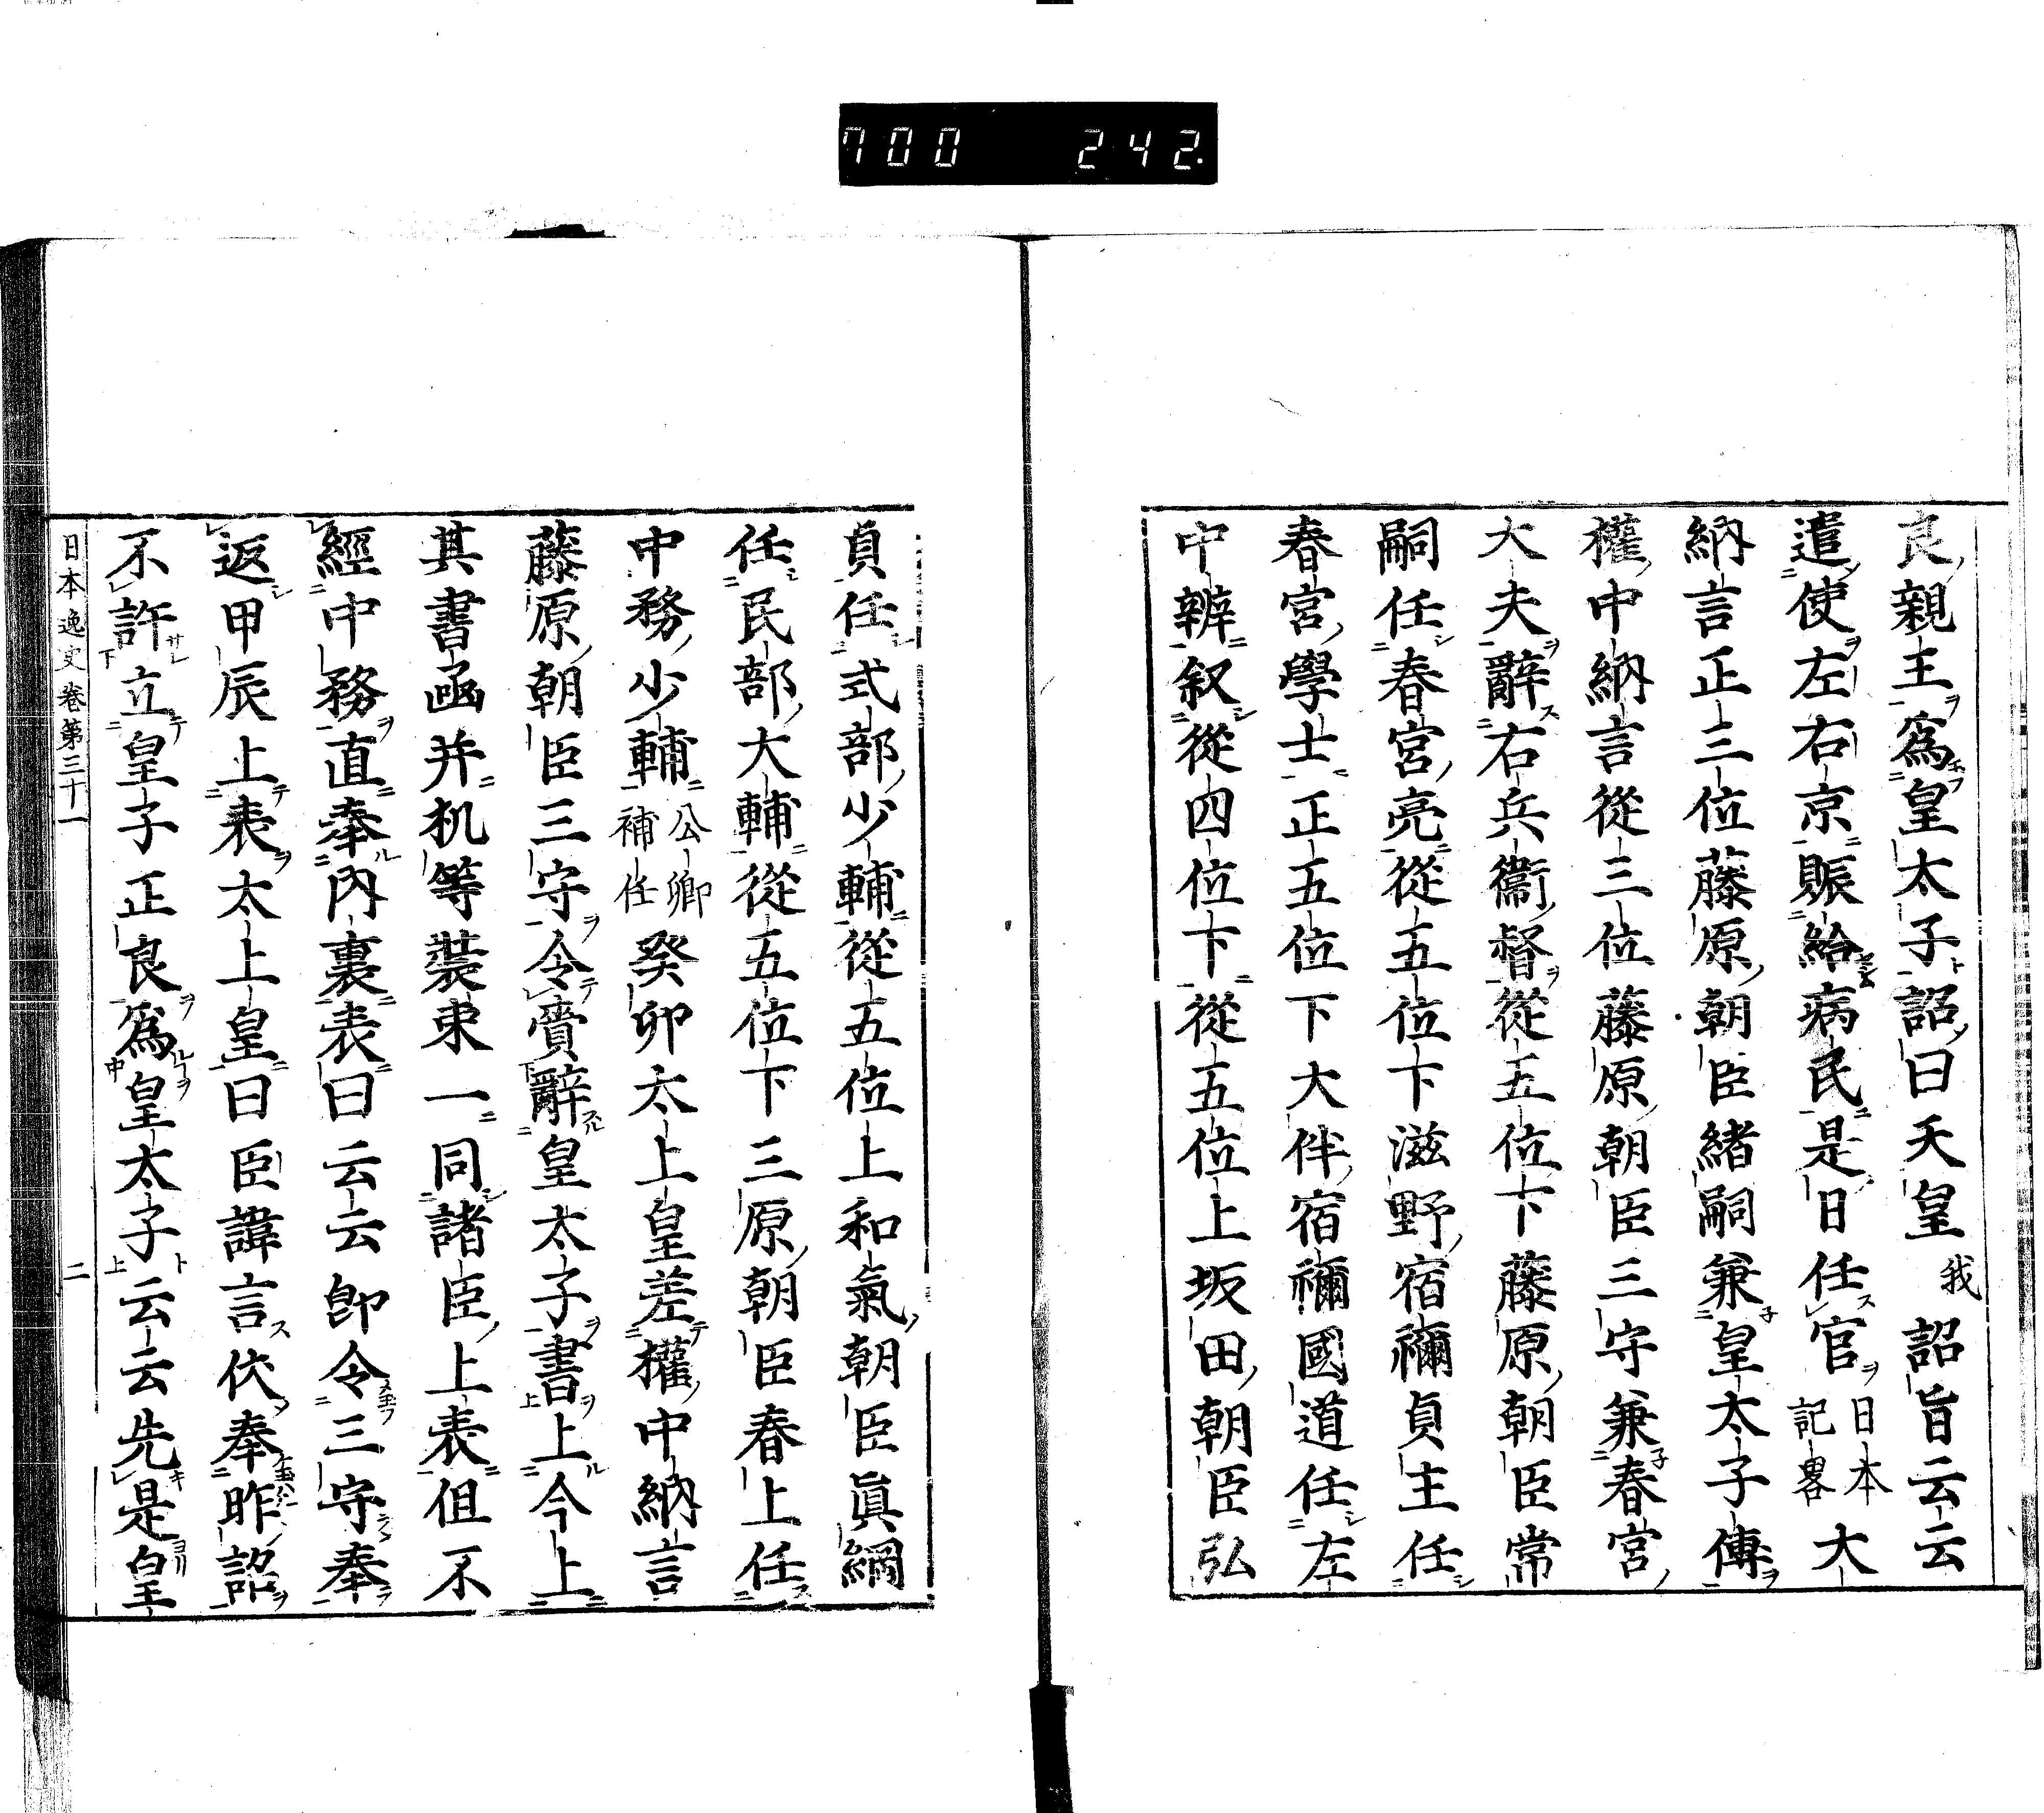 700 242.
良親王爲皇太子詔曰天皇我詔旨云云
遣使左右京賑給病民是日任官日本記畧大
納言正三位藤原朝臣緒嗣兼皇太子傅
權中納言從三位藤原朝臣三守兼春宮
大夫辭右兵衞督從五位下藤原朝臣常
嗣任春宮亮從五位下滋野宿禰貞主任
春宮學士正五位下大伴宿禰國道任左
中辨叙從四位下從五位上坂田朝臣弘
貞任式部少輔從五位上和氣朝臣眞綱
任民部大輔從五位下三原朝臣春上任
中務少輔公卿補任癸卯太上皇差權中納言
藤原朝臣三守令賷辭皇太子書上今上
其書凾并机等裝束一同諸臣上表但不
經中務直奉內裏表曰云云卽令三守奉
返甲辰上表太上皇曰臣諱言伏奉昨詔
不許立皇子正良爲皇太子云云先是皇
日本逸史卷第三十一 二